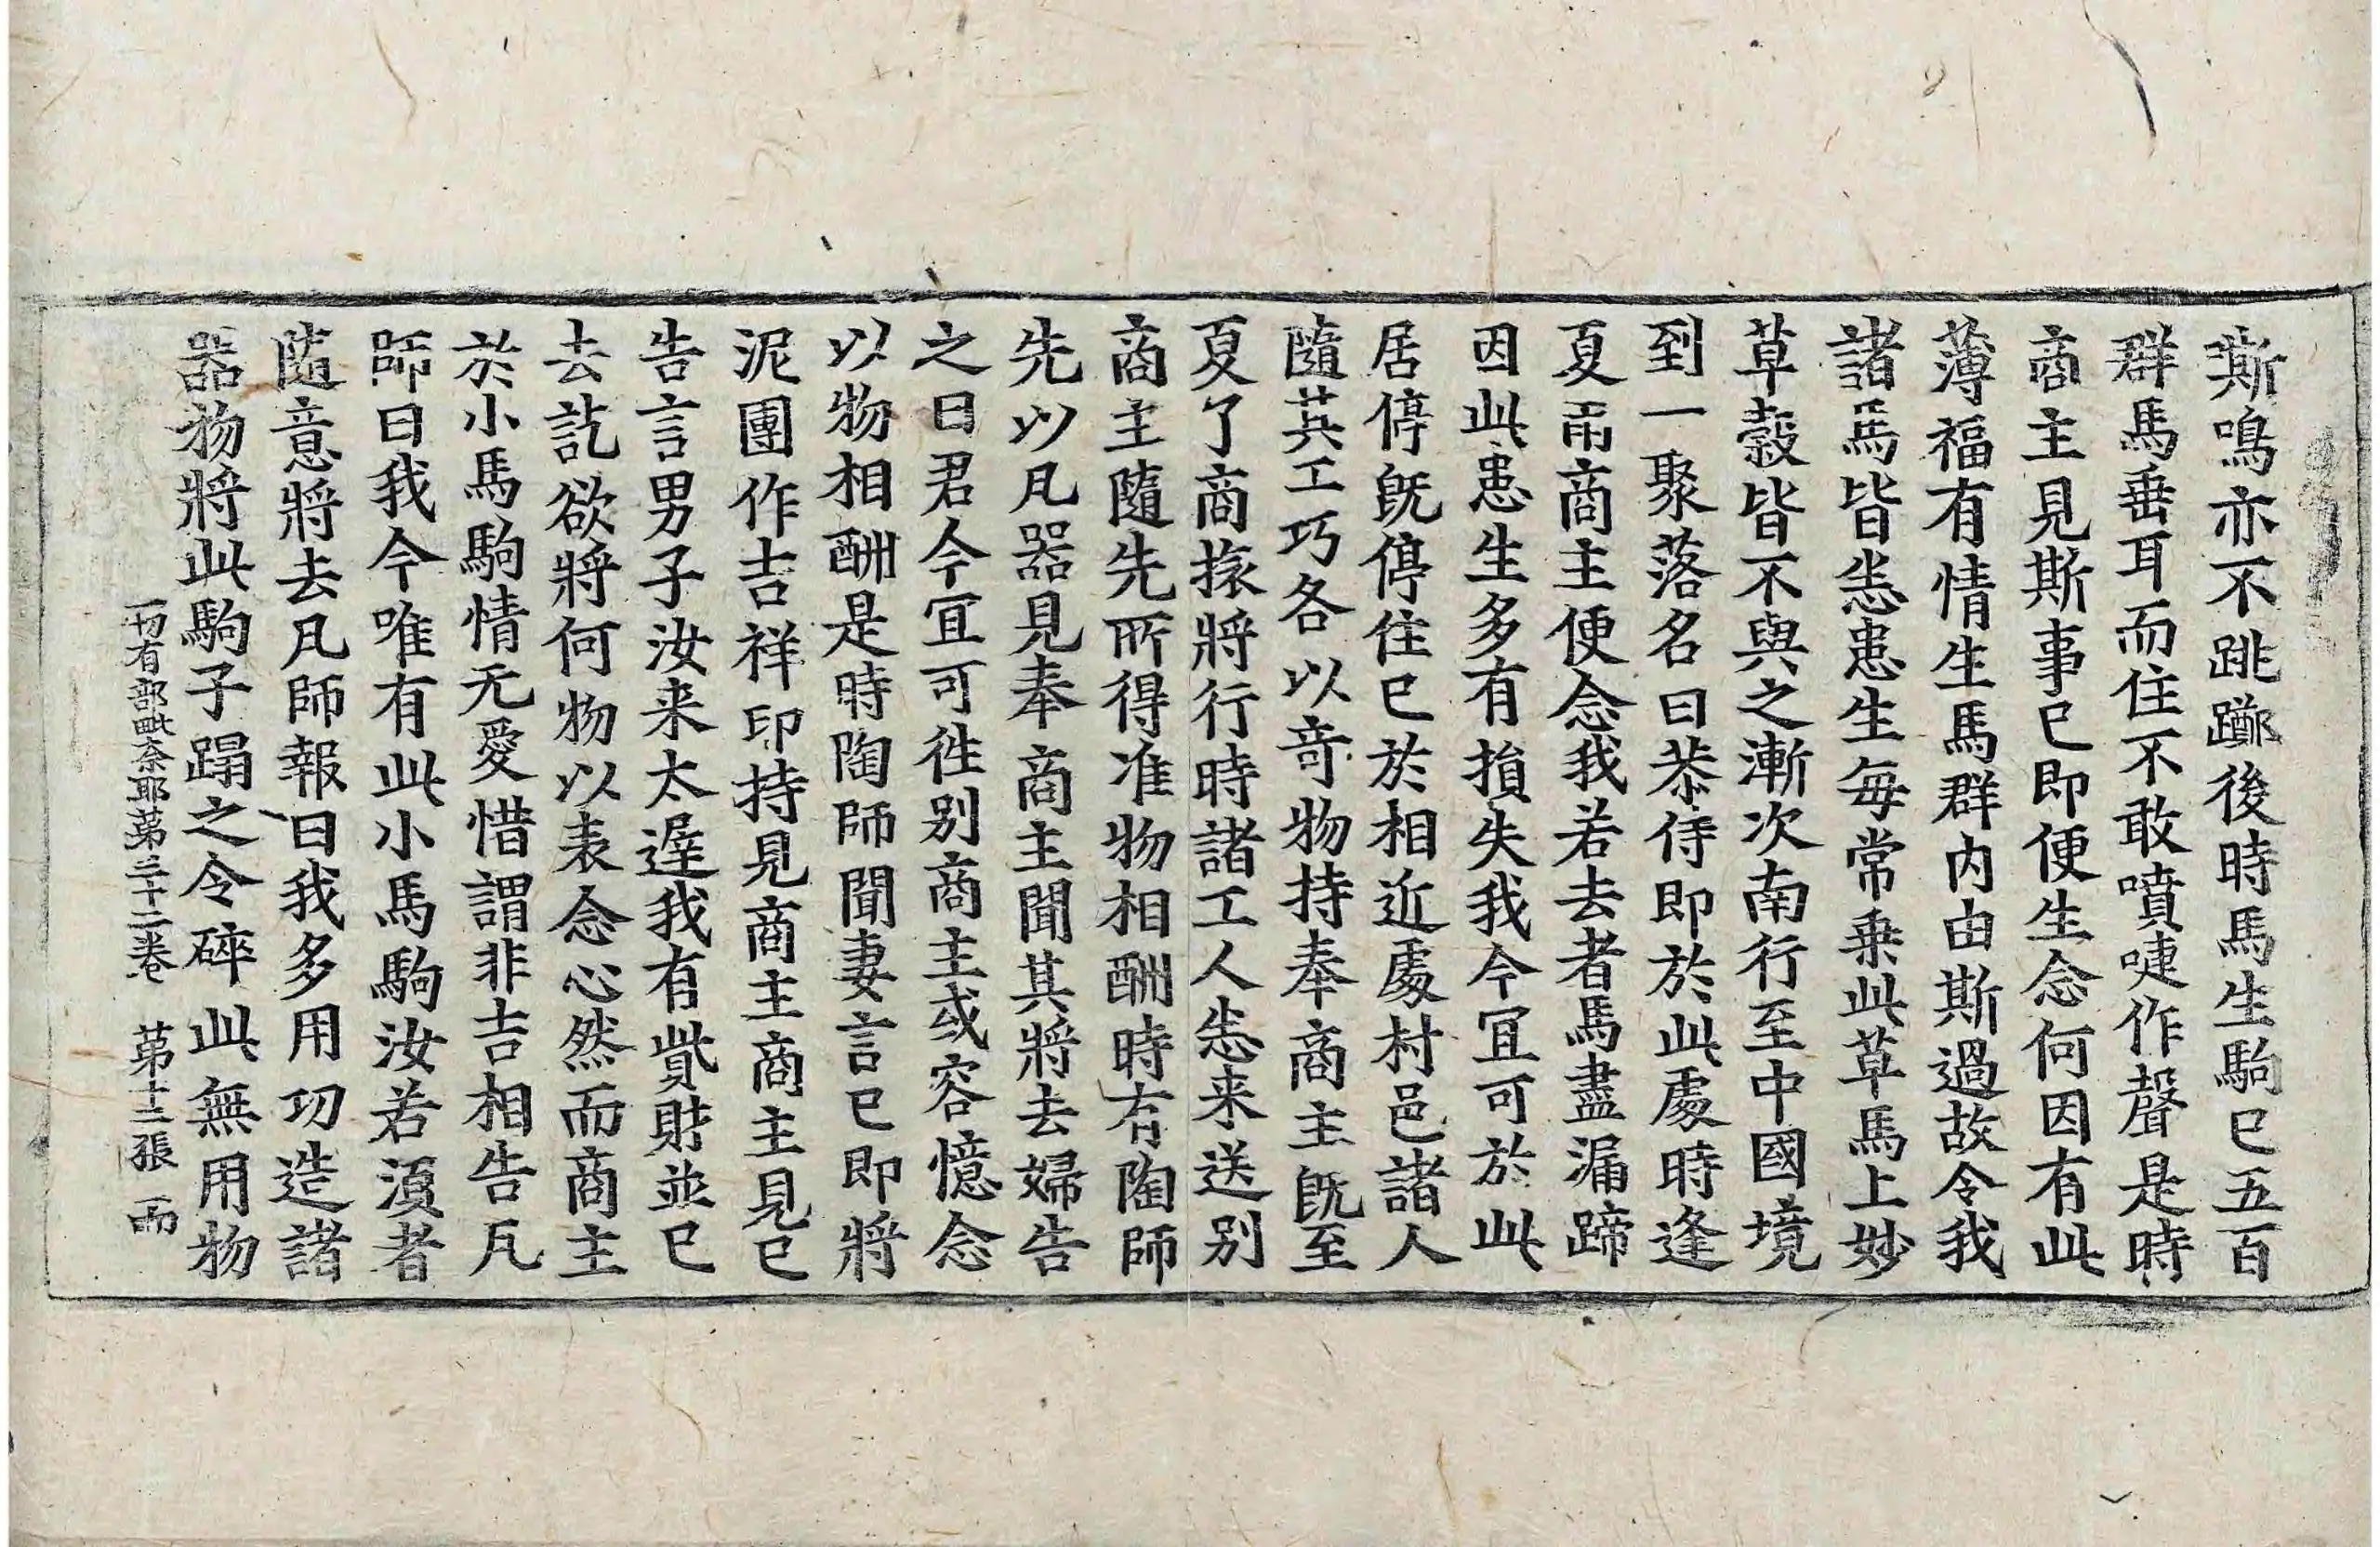 嘶鳴亦不跳躑後時馬生駒已五百
群馬垂耳而住不敢噴㖶作聲是時
商主見斯事已即便生念何因有此
薄福有情生馬群内由斯過故令我
諸馬皆悉患生每常乗此草馬上妙
草糓皆不與之漸次南行至中國境
到一聚落名曰恭侍即於此處時逢
夏雨商主便念我若去者馬盡漏蹄
因此患生多有損失我今冝可於此
居停旣停住已於相近處村邑諸人
隨其工巧各以竒物持奉商主旣至
夏了商旅將行時諸工人悉来送别
商主隨先所得准物相酬時有陶師
先以凡器見奉商主聞其將去婦告
之曰君今冝可徃别商主或容憶念
以物相酬是時陶師聞妻言已即將
泥團作吉祥印持見商主商主見已
告言男子汝来太遅我有貲財並已
去訖欲將何物以表念心然而商主
於小馬駒情无愛惜謂非吉相告凡
師曰我今唯有此小馬駒汝若湏者
隨意將去凡師報曰我多用功造諸
器物將此駒子蹋之令碎此無用物
一切有部毗奈耶苐三十二卷　苐十三張　雨